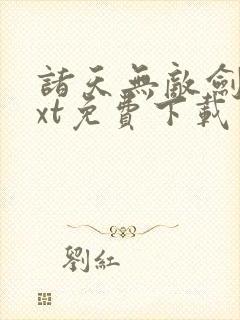 諸天無敵劍
xt免費下載
劉紅